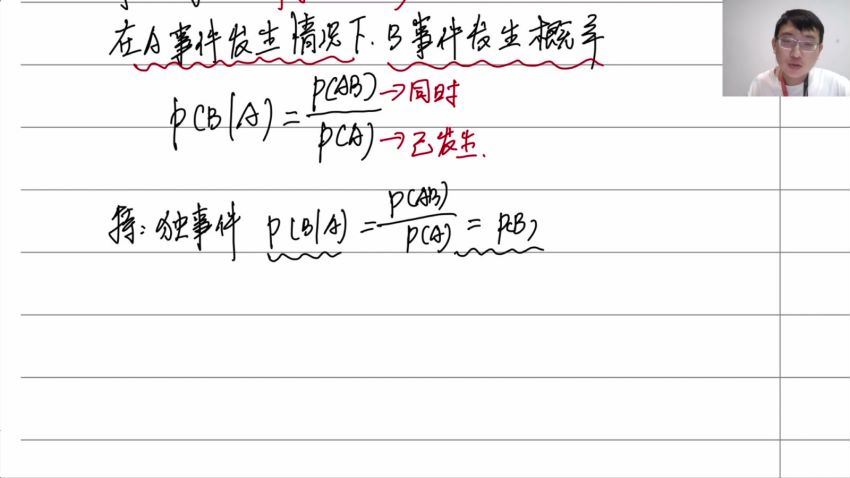 在A事件发生情况下.B事件发生概率
P(B|A)=P(AB)/P(A) →同时 →已发生.
特:独事件 P(B|A)=P(AB)/P(A)=P(B)